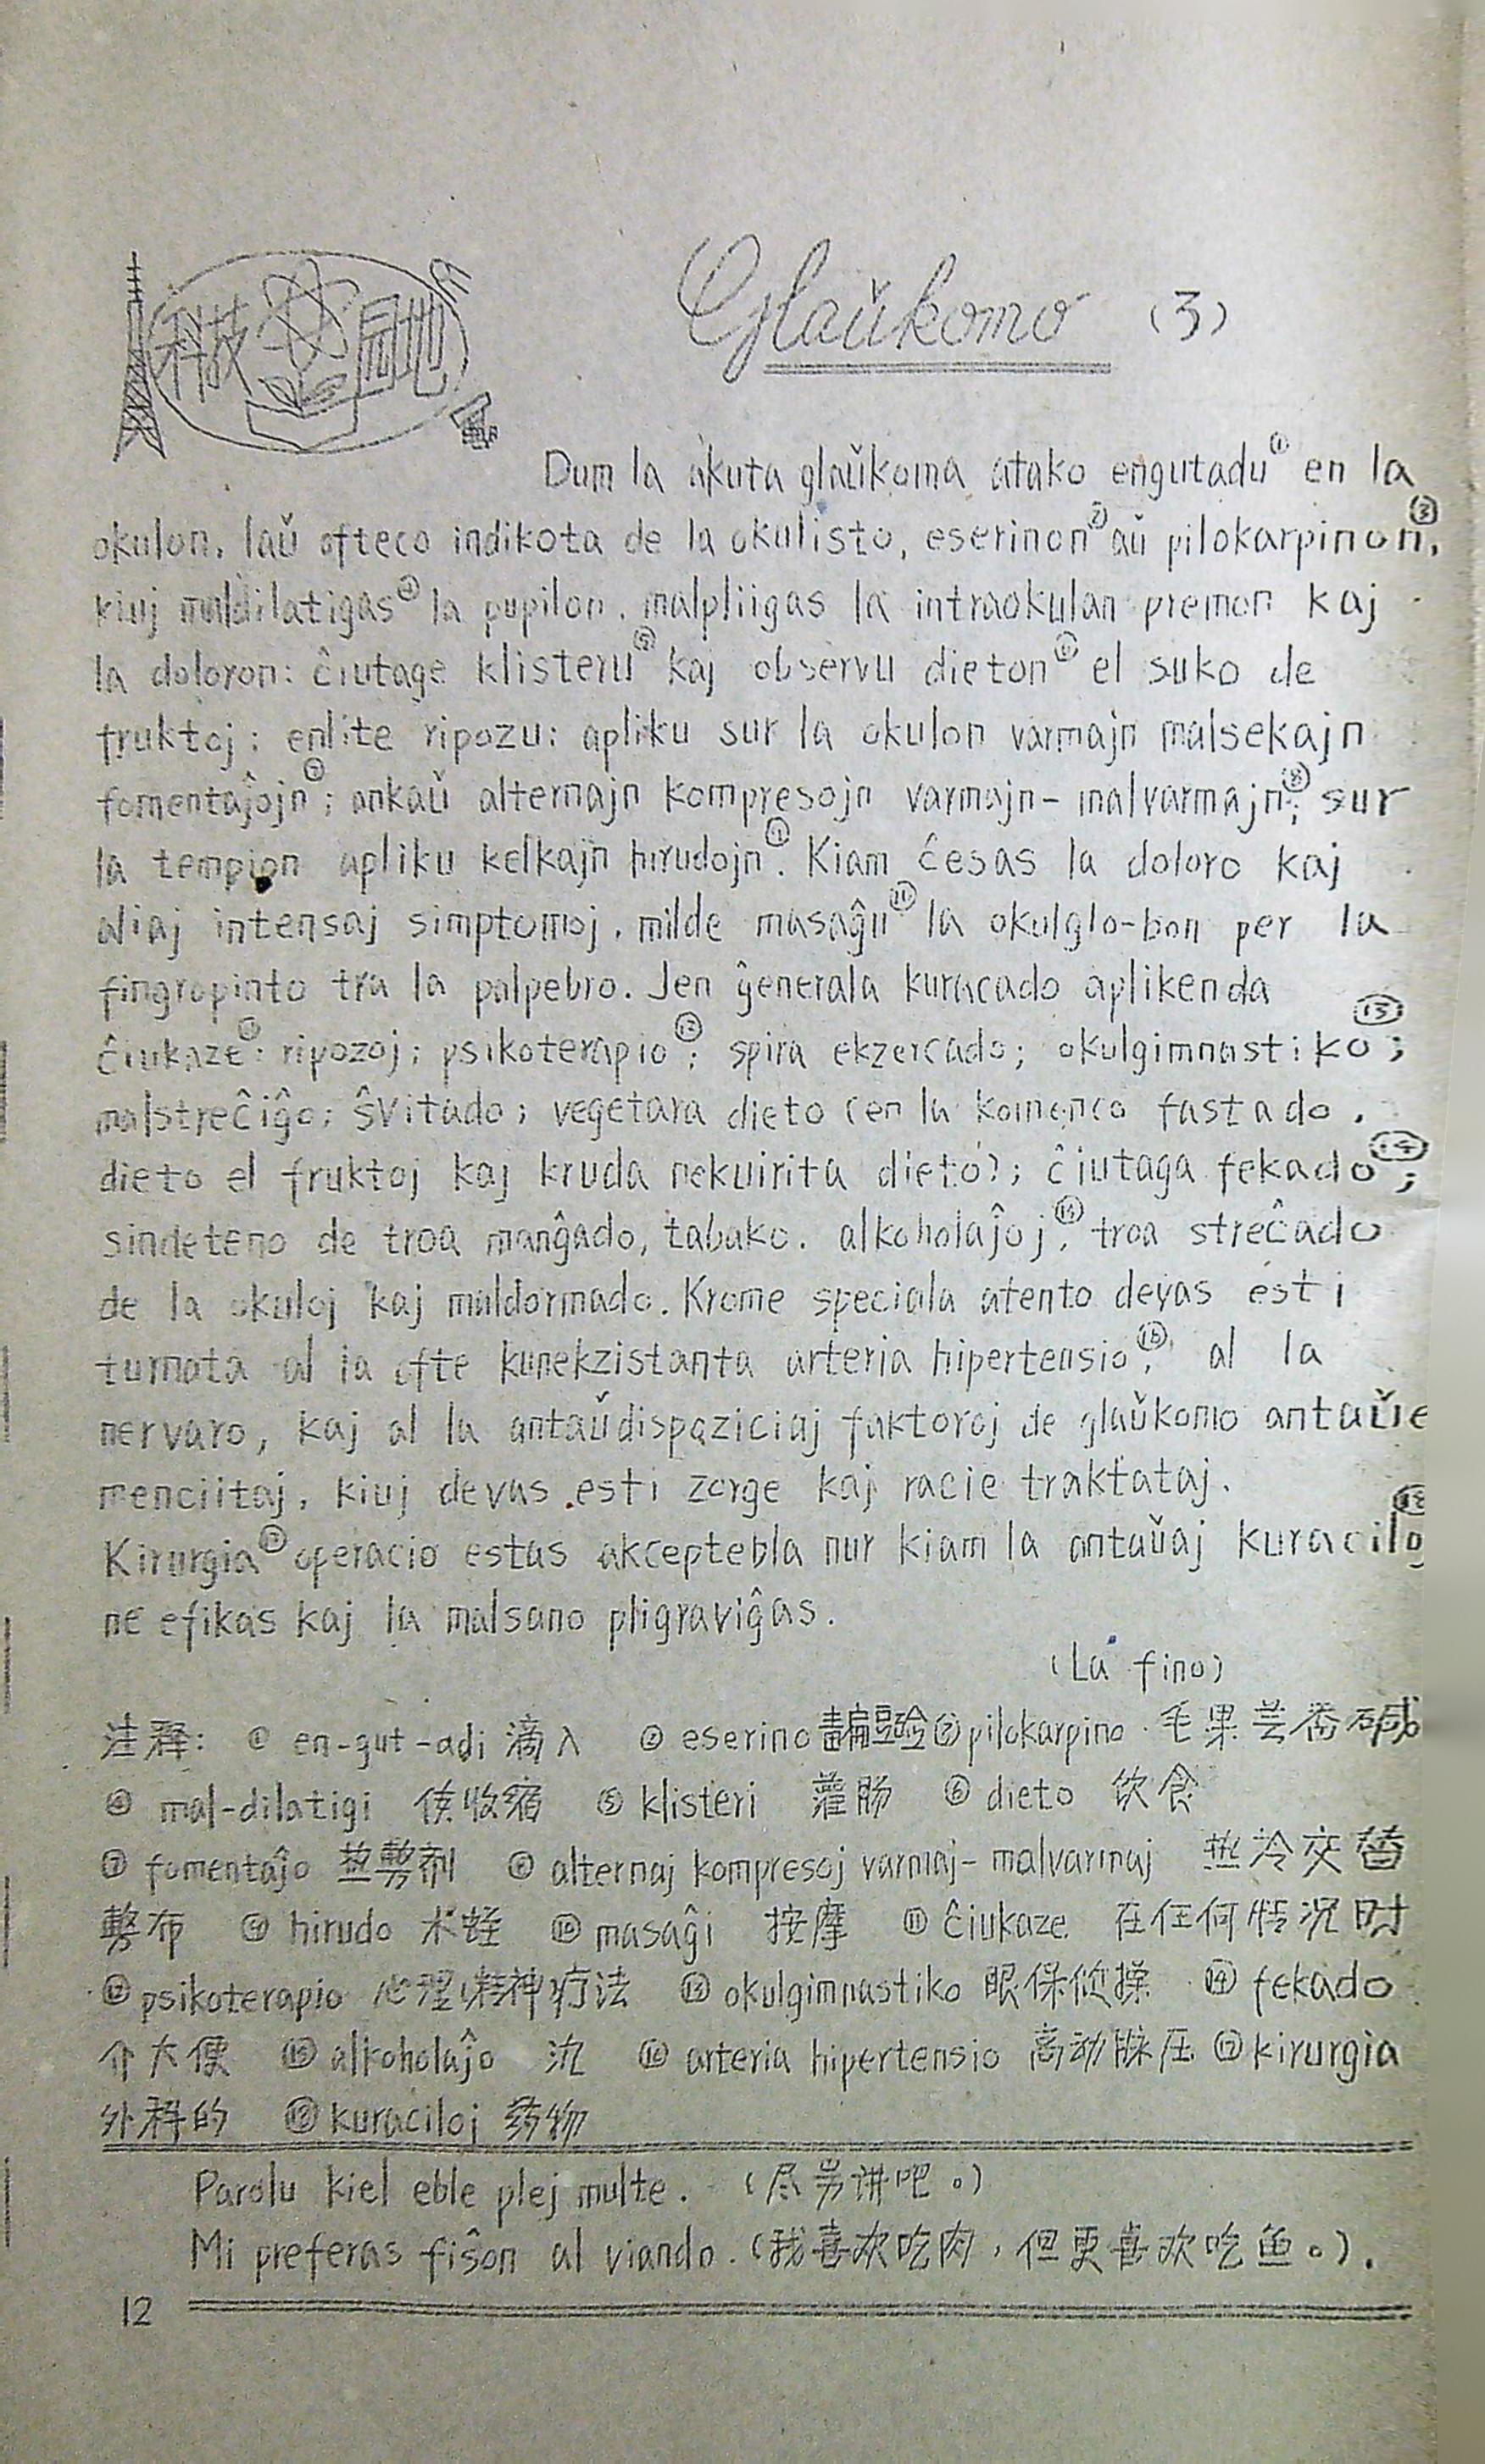 科技园地
Glaŭkomo (3)
Dum la akuta glaŭkoma atako engutadu① en la
okulon, laŭ ofteco indikota de la okulisto, eserinon② aŭ pilokarpinon③,
kiuj maldilatigas④ la pupilon, malpliigas la intraokulan premon kaj
la doloron: ĉiutage klisteru⑤ kaj observu dieton⑥ el suko de
fruktoj; enlite ripozu; apliku sur la okulon varmajn malsekajn
fomentaĵojn⑦; ankaŭ alternajn kompresojn varmajn-malvarmajn⑧; sur
la tempion apliku kelkajn hirudojn⑨. Kiam ĉesas la doloro kaj
aliaj intensaj simptomoj, milde masaĝu⑪ la okulglo-bon per la
fingropinto tra la palpebro. Jen ĝenerala kuracado aplikenda
ĉiukaze: ripozoj; psikoterapio⑫; spira ekzercado; okulgimnastiko⑬;
malstreĉiĝo; ŝvitado; vegetara dieto (en la komenco fastado,
dieto el fruktoj kaj kruda nekuirita dieto); ĉiutaga fekado⑭;
sindeteno de troa manĝado, tabako, alkoholaĵoj⑮, troa streĉado
de la okuloj kaj maldormado. Krome speciala atento devas esti
turnata al la ofte kunekzistanta arteria hipertensio⑯, al la
nervaro, kaj al la antaŭdispoziciaj faktoroj de glaŭkomo antaŭe
menciitaj, kiuj devas esti zorge kaj racie traktataj.
Kirurgia⑰ operacio estas akceptebla nur kiam la antaŭaj kuracilo⑱
ne efikas kaj la malsano pligraviĝas.
(La fino)
注释: ① en-gut-adi 滴入 ② eserino ③ pilokarpino 毛果芸香碱
④ mal-dilatigi 使收缩 ⑤ klisteri 灌肠 ⑥ dieto 饮食
⑦ fomentaĵo 热敷剂 ⑧ alternaj kompresoj varmaj-malvarmaj 热冷交替
敷布 ⑨ hirudo 水蛭 ⑩ masaĝi 按摩 ⑪ ĉiukaze 在任何情况时
⑫ psikoterapio 心理(精神疗法 ⑬ okulgimnastiko 眼保健操 ⑭ fekado
大便 ⑮ alkoholaĵo 酒 ⑯ arteria hipertensio 高动脉压 ⑰ kirurgia
外科的 ⑱ kuraciloj 药物
Parolu kiel eble plej multe. (尽多讲吧。)
Mi preferas fiŝon al viando. (我喜欢吃肉,但更喜欢吃鱼。).
12